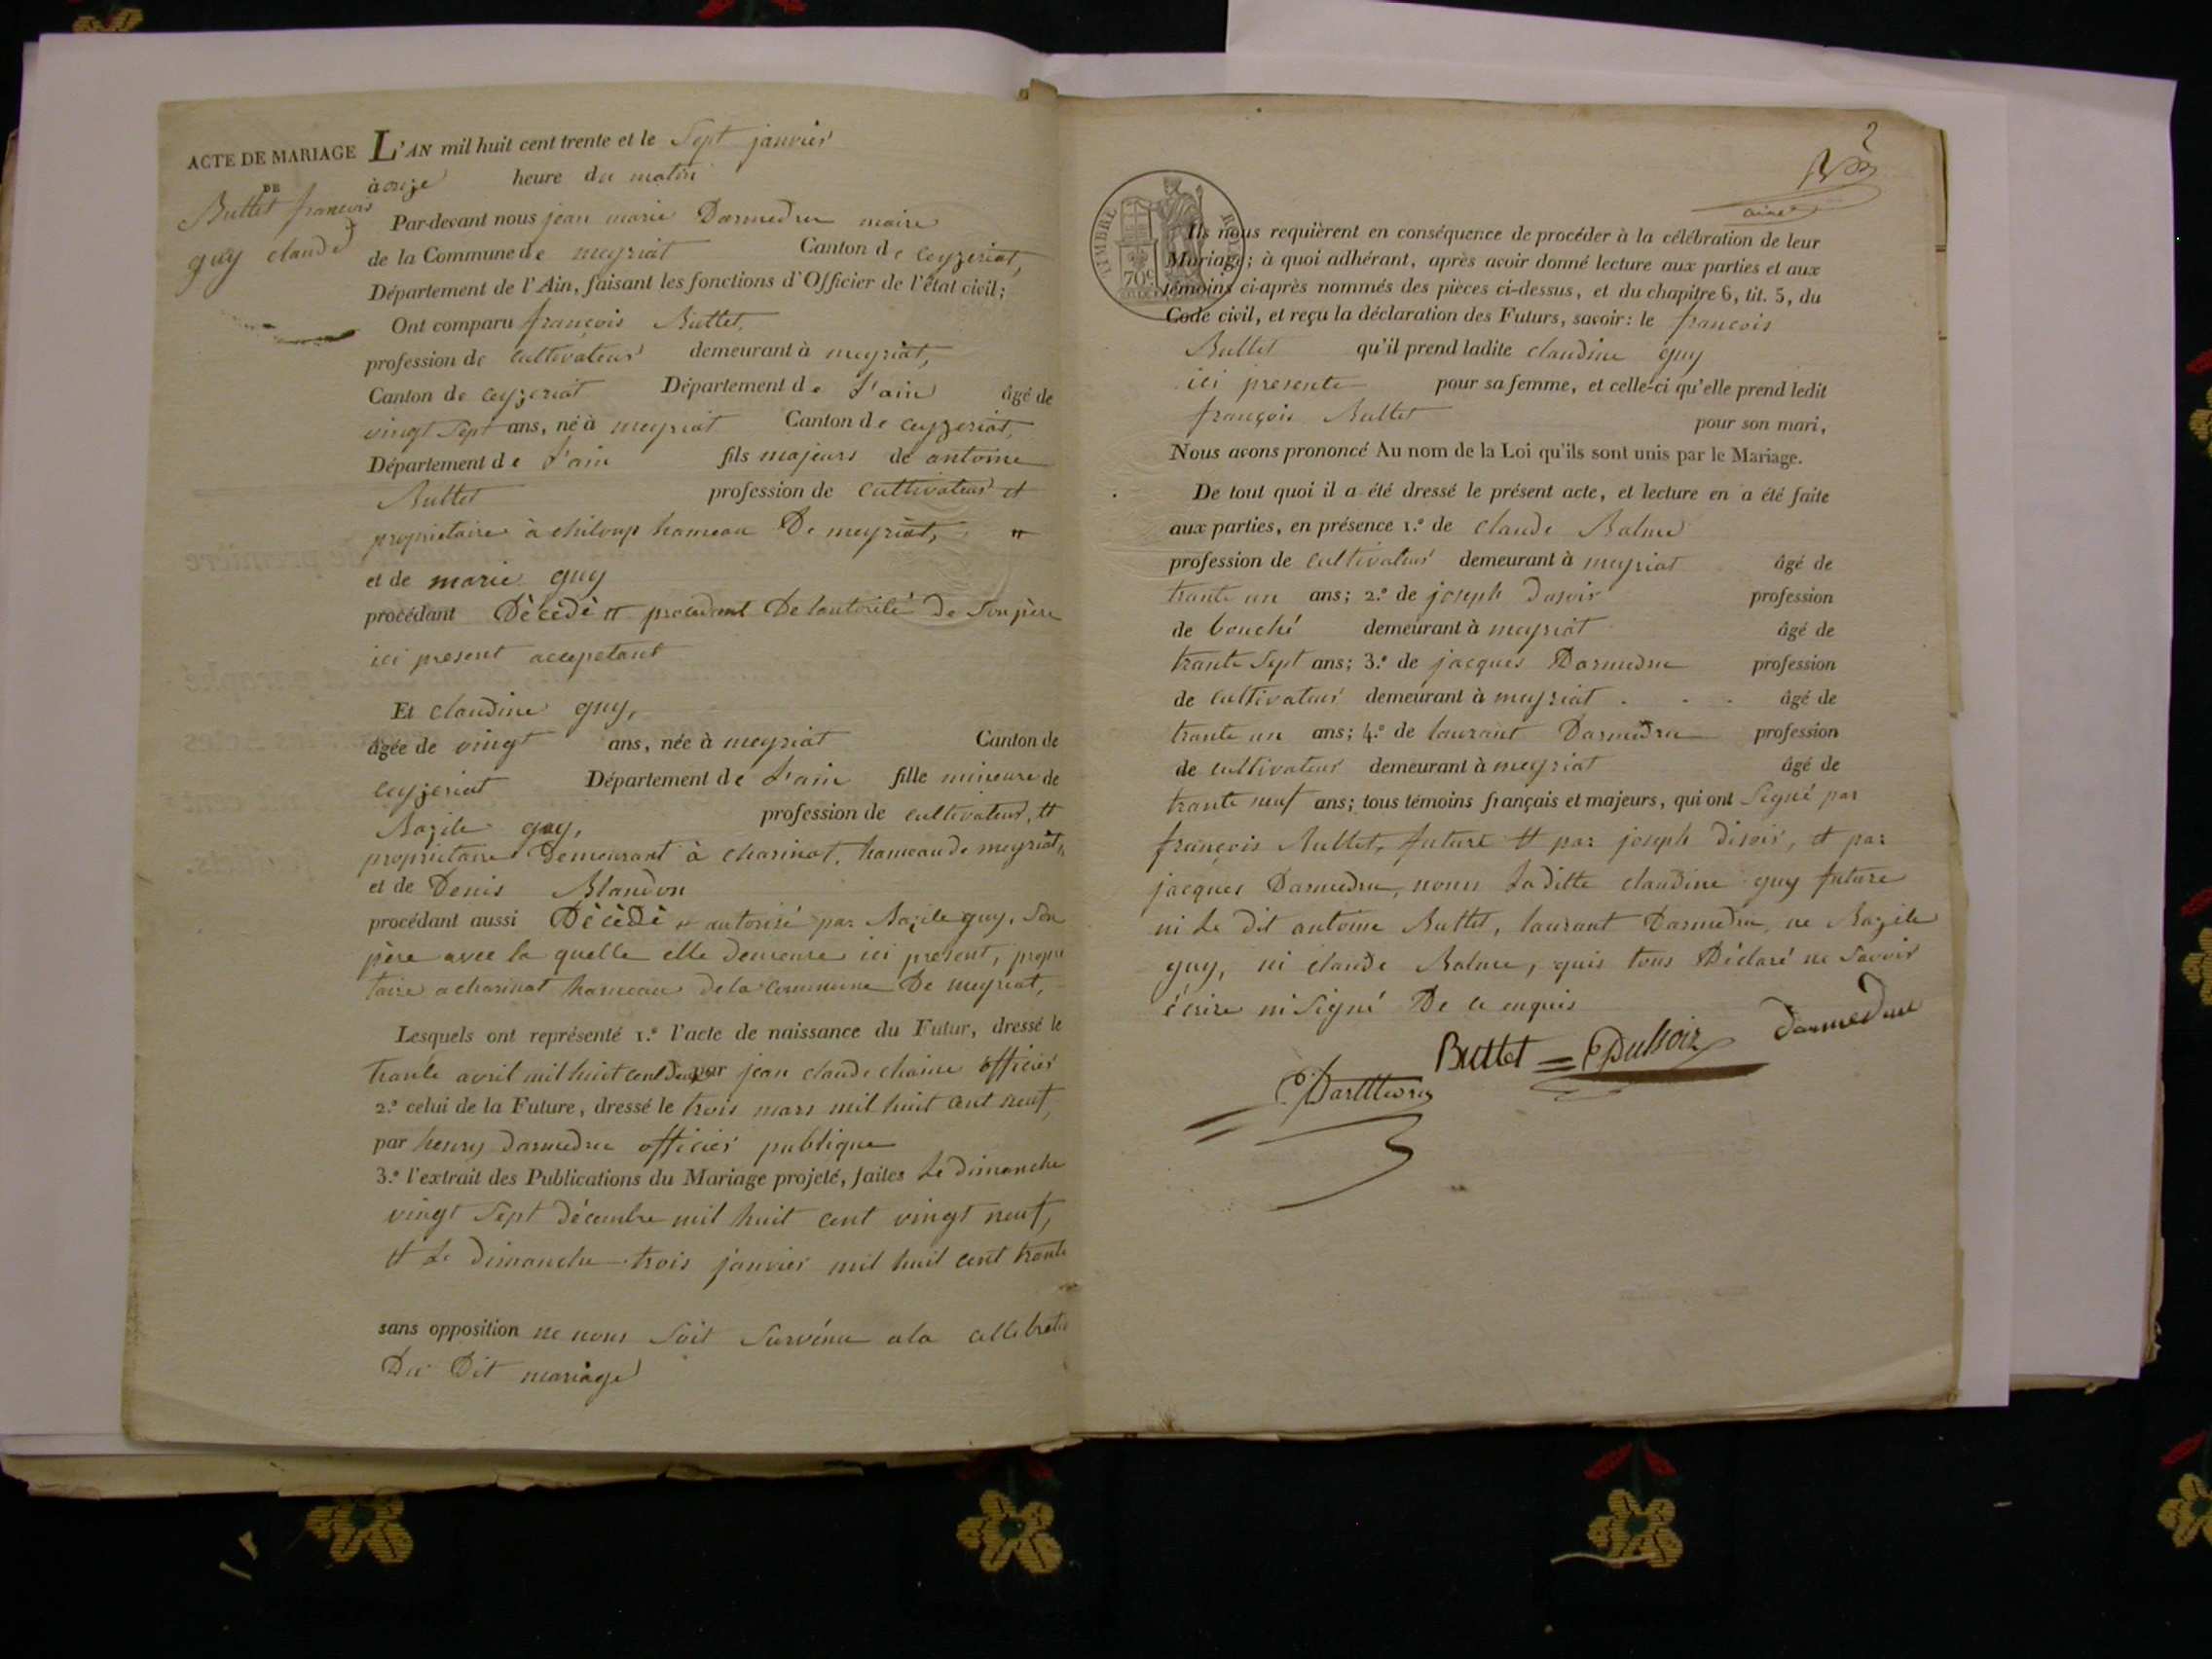 ACTE DE MARIAGE
DE
Buttet françois
guy claude
L'AN mil huit cent trente et le Sept janvier
à onze heure du matin
Par-devant nous jean marie Darmedru maire
de la Commune de meyriat Canton de ceyzeriat,
Département de l'Ain, faisant les fonctions d'Officier de l'état civil;
Ont comparu françois Buttet,
profession de cultivateur demeurant à meyriat,
Canton de ceyzeriat Département de L'ain âgé de
vingt Sept ans, né à meyriat Canton de ceyzeriat,
Département de L'ain fils majeurs de antoine
Buttet profession de cultivateur et
proprietaire à chiloup hameau De meyriat,
et de marie guy
procédant Dècèdè et procedant De lautorité de Son père
ici present accepetant
Et claudine guy,
âgée de vingt ans, née à meyriat Canton de
ceyzeriat Département de L'ain fille mineure de
Bazile guy, profession de cultivateur, et
proprietaire Demeurant à charinat, hameau de meyriat,
et de Denis Blandon
procédant aussi Dècèdè et autorisé par Bazile guy, Son
père avec la quelle elle demeure ici present, propri
taire a charinat hameau de la commune De meyriat,
Lesquels ont représenté 1.º l'acte de naissance du Futur, dressé le
trante avril mil huit cent deux par jean claude chaine officier
2.º celui de la Future, dressé le trois mars mil huit cent neuf,
par henry darmedru officier publique
3.º l'extrait des Publications du Mariage projeté, faites Le dimanche
vingt Sept décembre mil huit cent vingt neuf,
et Le dimanche trois janvier mil huit cent trante
sans opposition ne nous Soit Survénu a la cellebratio
Du Dit mariage
2
aine
TIMBRE
70c
Ils nous requièrent en conséquence de procéder à la célébration de leur
Mariage; à quoi adhérant, après avoir donné lecture aux parties et aux
témoins ci-après nommés des pièces ci-dessus, et du chapitre 6, tit. 5, du
Code civil, et reçu la déclaration des Futurs, savoir: le françois
Buttet qu'il prend ladite claudine guy
ici presente pour sa femme, et celle-ci qu'elle prend ledit
françois Buttet pour son mari,
Nous avons prononcé Au nom de la Loi qu'ils sont unis par le Mariage.
De tout quoi il a été dressé le présent acte, et lecture en a été faite
aux parties, en présence 1.º de claude Balme
profession de cultivateur demeurant à meyriat âgé de
trante un ans; 2.º de joseph dusoir profession
de bouché demeurant à meyriat âgé de
trante Sept ans; 3.º de jacques Darmedru profession
de cultivateur demeurant à meyriat âgé de
trante un ans; 4.º de laurant Darmedru profession
de cultivateur demeurant à meyriat âgé de
trante neuf ans; tous témoins français et majeurs, qui ont Segné par
françois Buttet, future et par joseph disoir, et par
jacques Darmedru, nonu Laditte claudine guy future
ni Le dit antoine Buttet, laurant Darmedru, ne Bazile
guy, ni claude Balme, quis tous Déclaré ne Savoir
écrire ni Signé De ce enquis
Buttet Dussoir darmedru
Darmedru